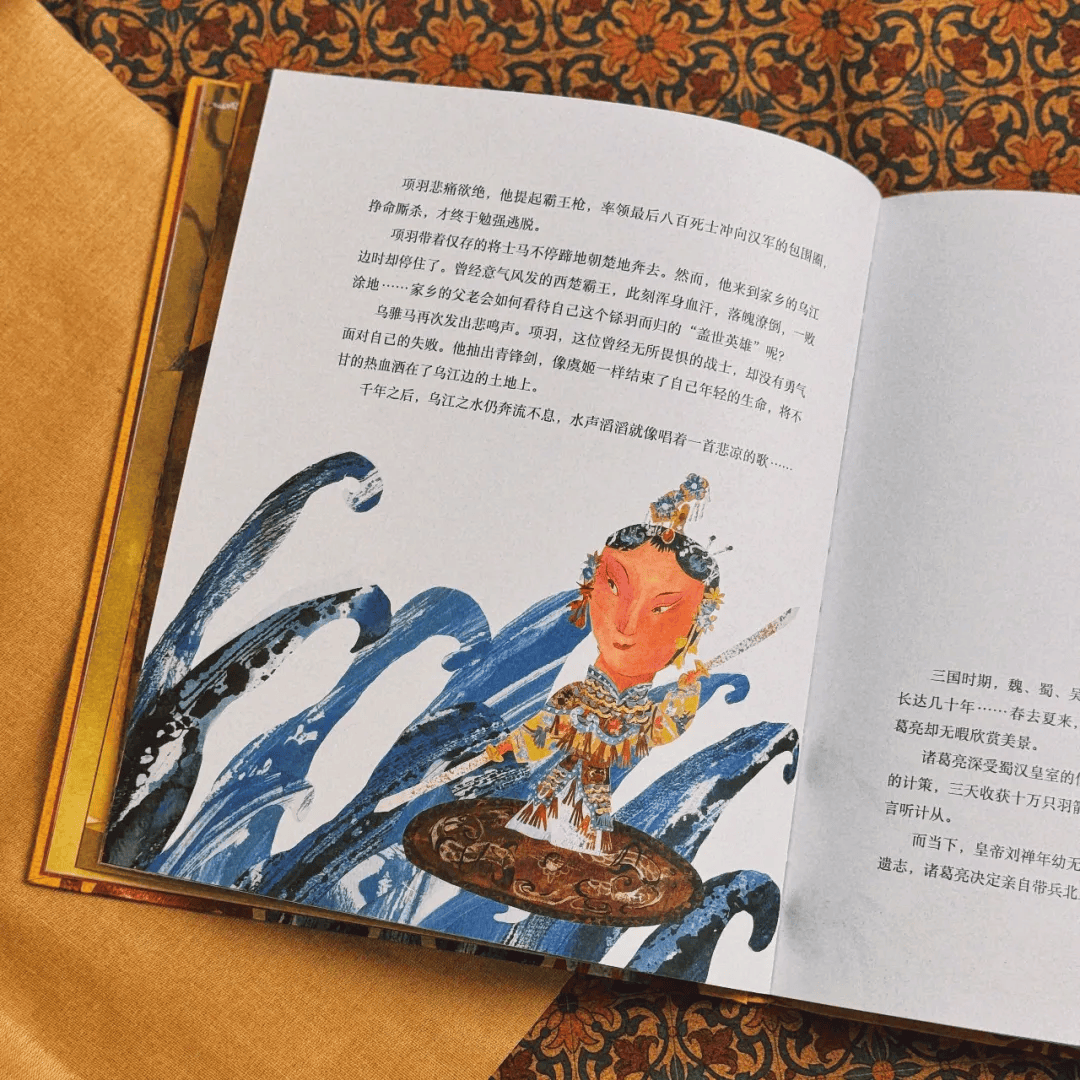 项羽悲痛欲绝，他提起霸王枪，率领最后八百死士冲向汉军的包围圈，
挣命厮杀，才终于勉强逃脱。
项羽带着仅存的将士马不停蹄地朝楚地奔去。然而，他来到家乡的乌江
边时却停住了。曾经意气风发的西楚霸王，此刻浑身血汗，落魄潦倒，一败
涂地……家乡的父老会如何看待自己这个铩羽而归的“盖世英雄”呢？
乌骓马再次发出悲鸣声。项羽，这位曾经无所畏惧的战士，却没有勇气
面对自己的失败。他抽出青锋剑，像虞姬一样结束了自己年轻的生命，将不
甘的热血洒在了乌江边的土地上。
千年之后，乌江之水仍奔流不息，水声滔滔就像唱着一首悲凉的歌……
三国时期，魏、蜀、吴
长达几十年……春去夏来，
葛亮却无暇欣赏美景。
诸葛亮深受蜀汉皇室的
的计策，三天收获十万只羽箭
言听计从。
而当下，皇帝刘禅年幼无
遗志，诸葛亮决定亲自带兵北